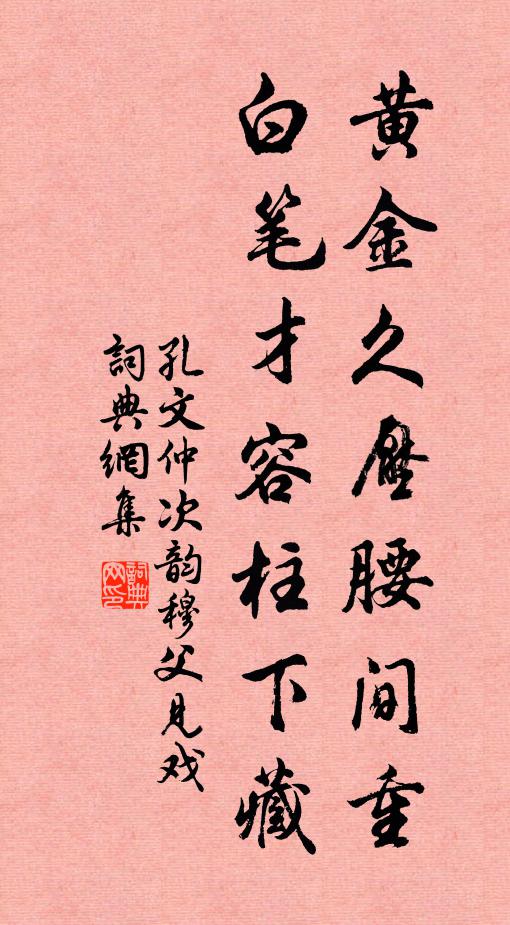 黄金久壓腰间重
白笔才容柱下藏
孔文仲次韵穆父見戏
詞典網集
詞典网印